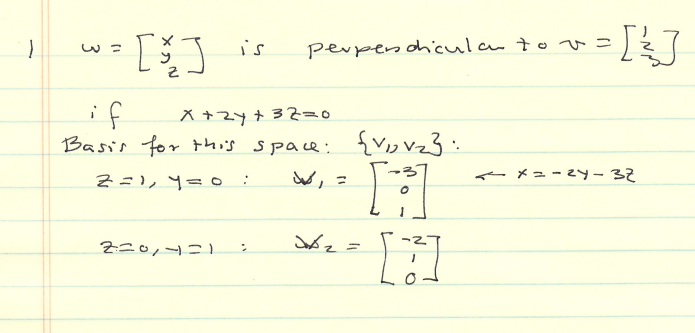 1 w = [x y z] is perpendicular to v = [1 2 3]
if x+2y+3z=0
Basis for this space: {v1, v2}:
z=1, y=0 : v1 = [-3 0 1] ← x=-2y-3z
z=0, y=1 : v2 = [-2 1 0]